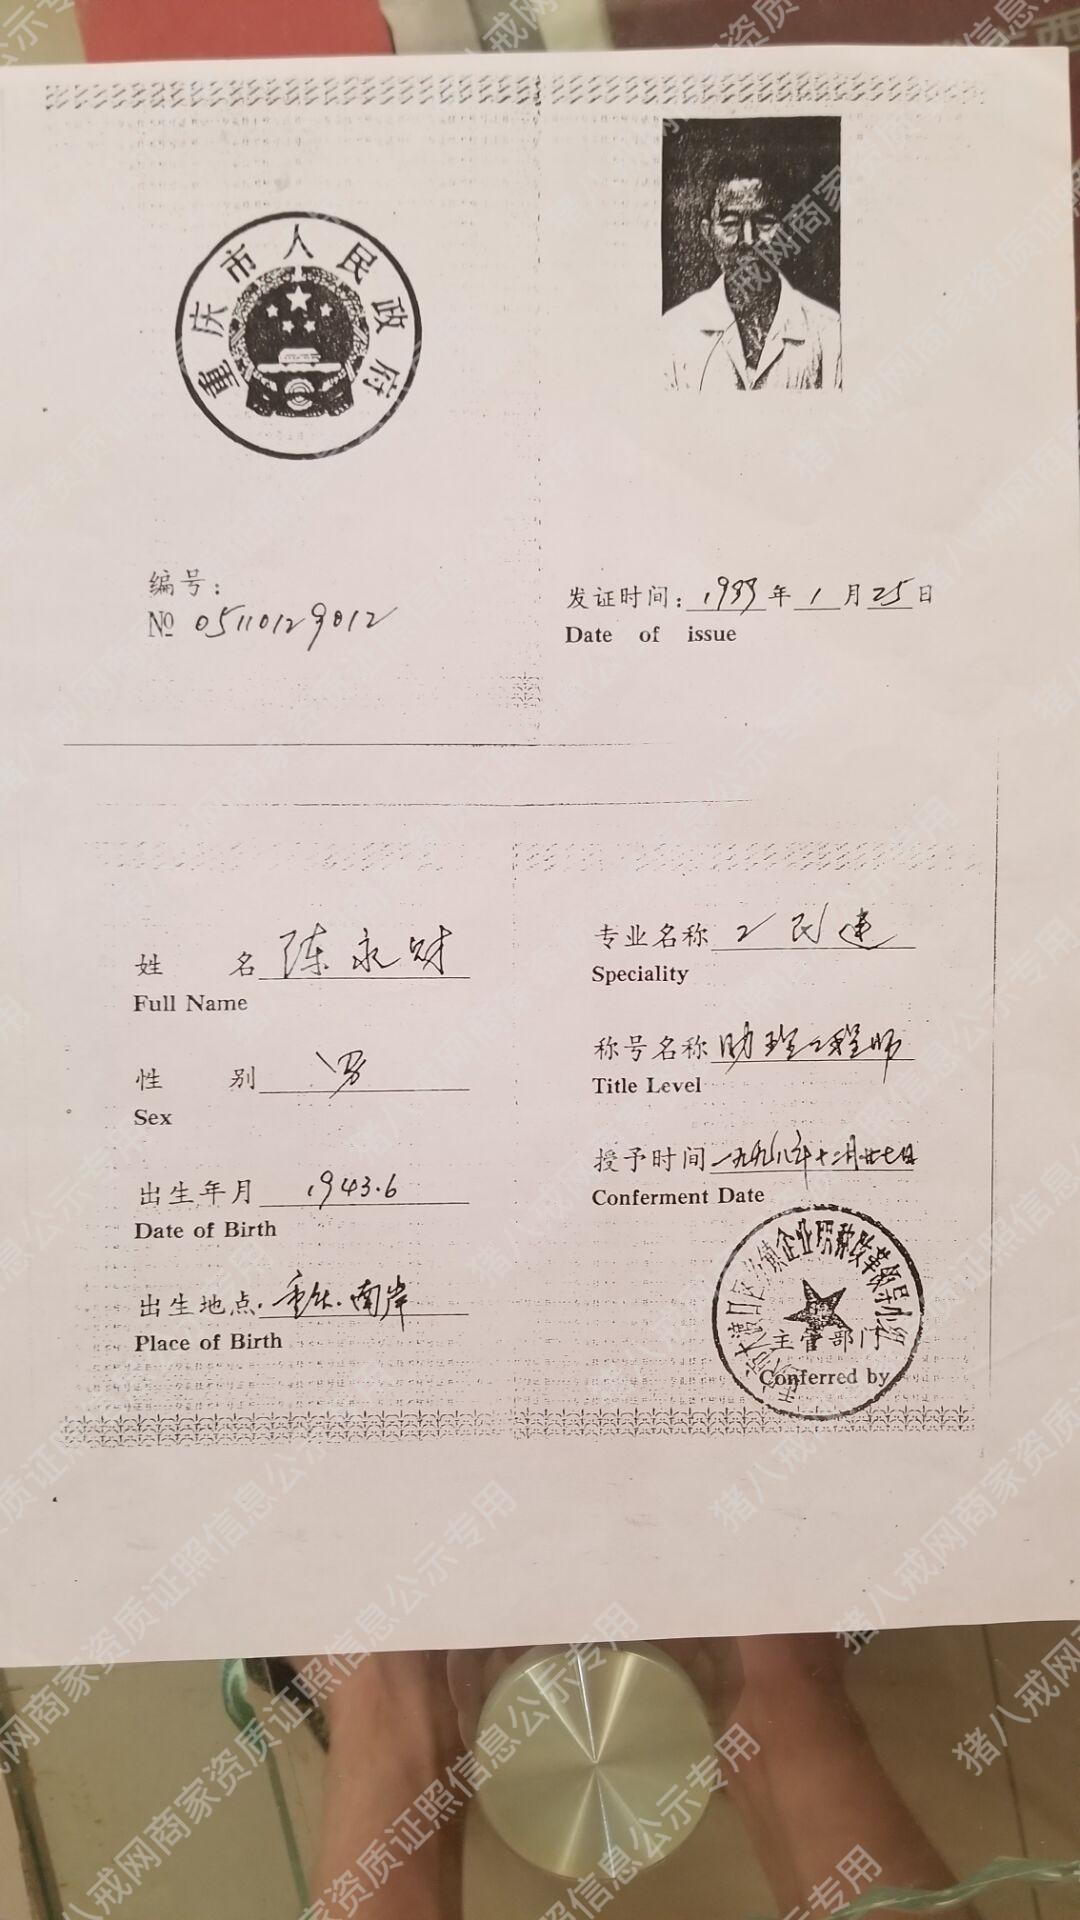 重庆市人民政府
编号：
№ 05110129012
发证时间：1999年1月25日
Date of issue
姓 名 陈永财
Full Name
性 别 男
Sex
出生年月 1943.6
Date of Birth
出生地点 重庆.南岸
Place of Birth
专业名称 工民建
Speciality
称号名称 助理工程师
Title Level
授予时间 一九九八年十二月廿七日
Conferment Date
大渡口区乡镇企业职称改革领导小组
主管部门
Conferred by
猪八戒网商家资质证照信息公示专用